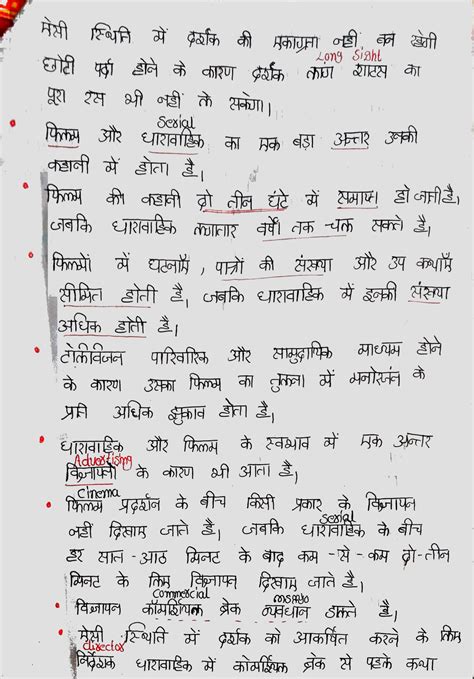 ऐसी स्थिति में दर्शक की एकाग्रता नहीं बन रहेगी
Long Sight
छोटी पर्दा होने के कारण दर्शक लांग शाटस का
पूरा रस भी नहीं ले सकेगा।
Serial
फिल्म और धारावाहिक का एक बड़ा अन्तर उनकी
कहानी में होता है।
फिल्म की कहानी दो तीन घंटे में समाप्त हो जाती है।
जबकि धारावाहिक लगातार वर्षों तक चल सकते है।
फिल्मों में घटनाएँ, पात्रों की संख्या और उप कथाएँ
सीमित होती है। जबकि धारावाहिक में इनकी संख्या
अधिक होती है।
टेलीविजन पारिवारिक और सामुदायिक माध्यम होने
के कारण उसका फिल्म का तुलना में मनोरंजन के
प्रति अधिक झुकाव होता है।
धारावाहिक और फिल्म के स्वभाव में एक अन्तर
Advertising
विज्ञापनों के कारण भी आता है।
Cinema
फिल्म प्रदर्शन के बीच किसी प्रकार के विज्ञापन
नहीं दिखाए जाते है। जबकि धारावाहिक के बीच
Serial
हर सात-आठ मिनट के बाद कम-से-कम दो-तीन
मिनट के लिए विज्ञापन दिखाए जाते है।
Commercial
विज्ञापन कॉमर्शियल ब्रेक व्यवधान डालते है।
ऐसी स्थिति में दर्शक को आकर्षित करने के लिए
director
निर्देशक धारावाहिक में कोमर्शियल ब्रेक से पहले कथा